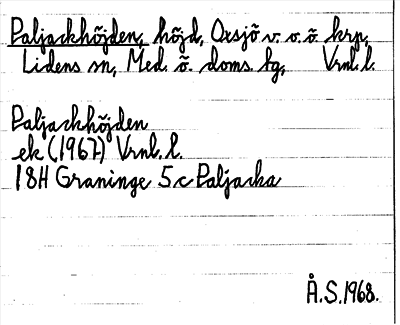 Paljackhöjden, höjd, Oxsjö v. o. ö. krp,
Lidens sn, Med. ö. doms. bg, Vrnl. l.
Paljackhöjden
ek (1967) Vrnl. l.
18H Graninge 5c Paljacka
Å.S. 1968.